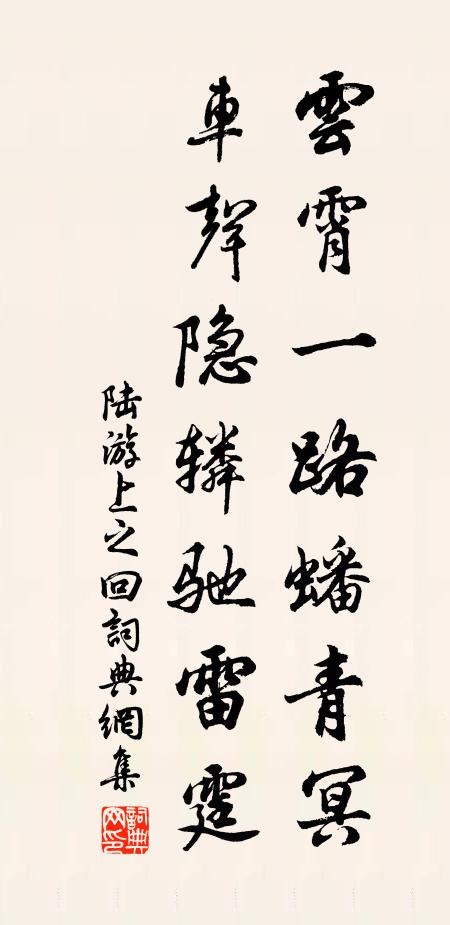 雲霄一路蟠青冥
車聲隐轔馳雷霆
陆游上之回詞典網集
詞典网印